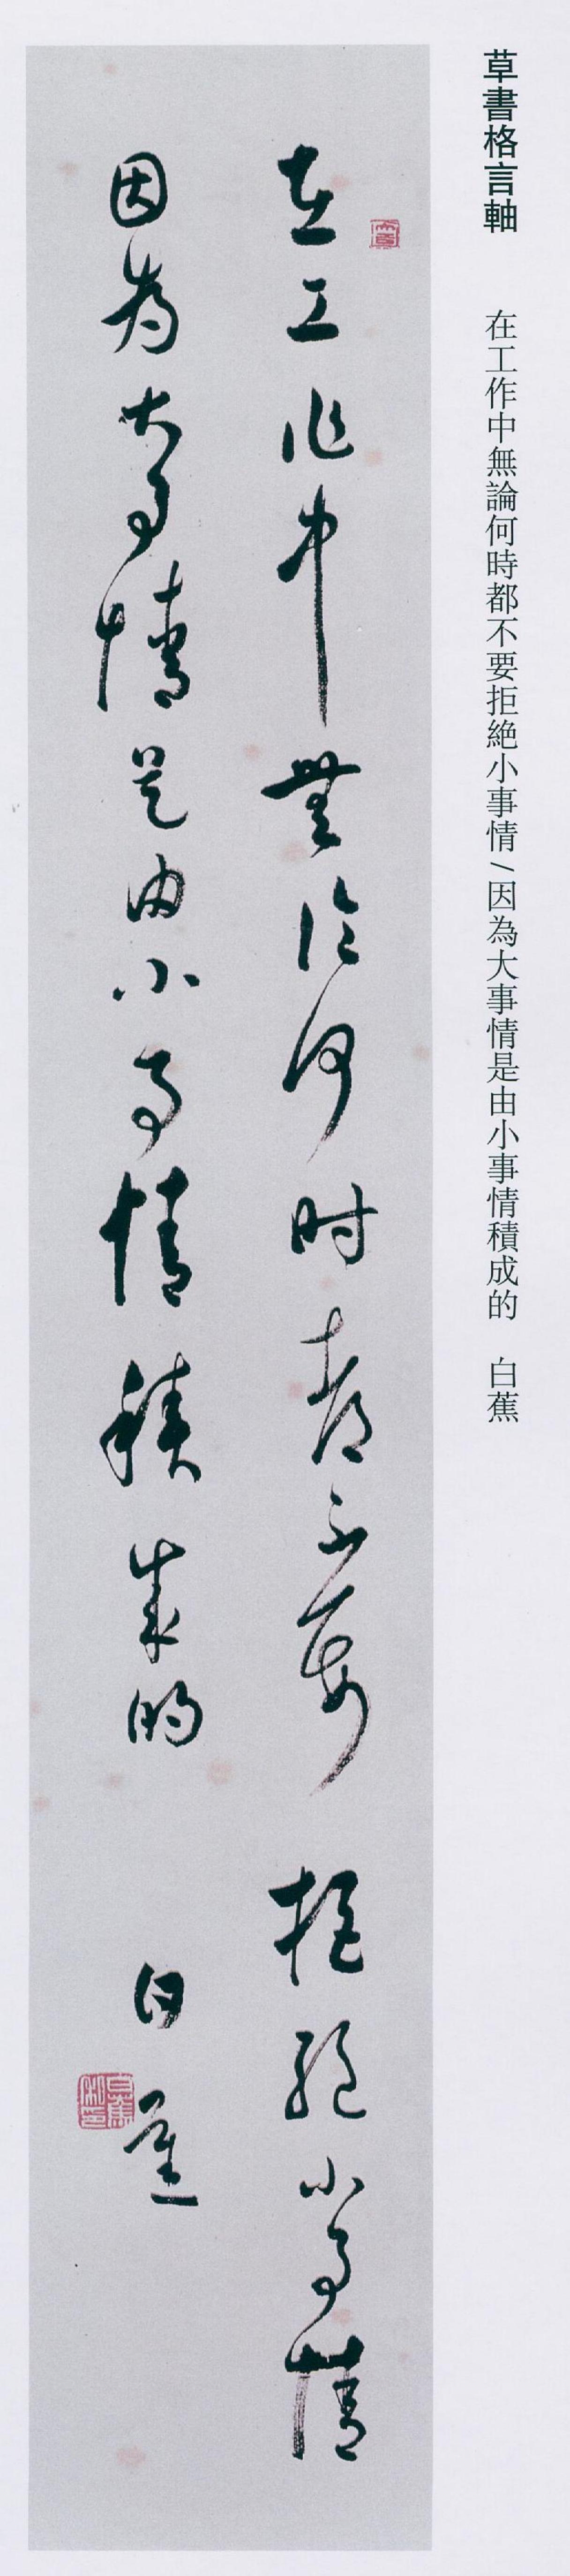 草書格言軸
在工作中無論何時都不要拒絶小事情/因為大事情是由小事情積成的 白蕉
在工作中無论何时都不要拒絶小事情
因為大事情是由小事情積成的 白蕉